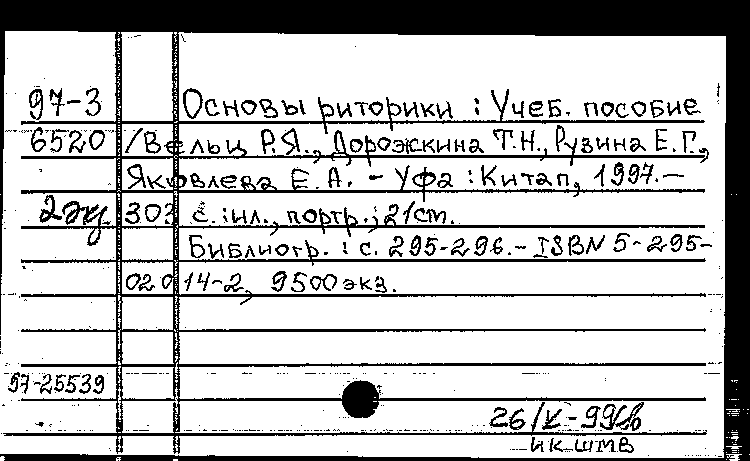 97-3 Основы риторики : Учеб. пособие
6520 /Вельц Р.Я., Дорожкина Т.Н., Рузина Е.Г.,
Яковлева Е.А. - Уфа : Китап, 1997.-
2 эк 303 с. : ил., портр.; 21 ст.
Библиогр. : с. 295-296. - ISBN 5-295-
02014-2, 9500 экз.
97-25539
26/V-99
ИК ШМВ